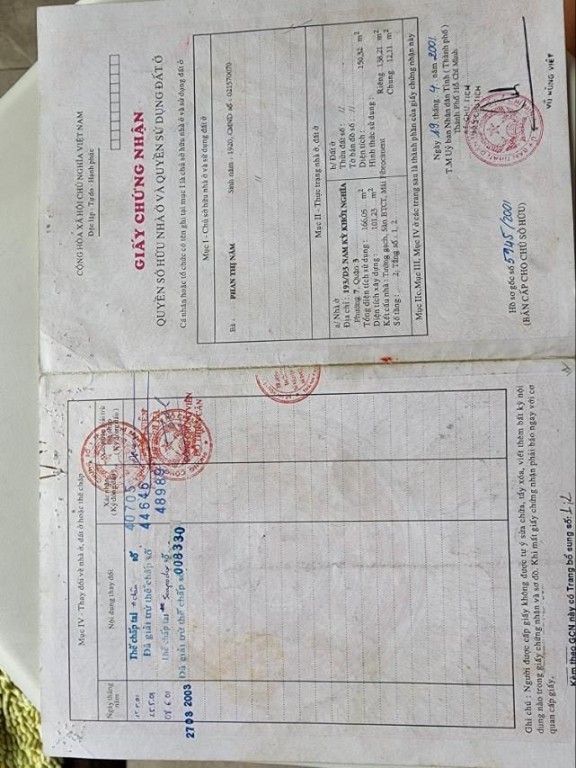 CỘNG HÒA XÃ HỘI CHỦ NGHĨA VIỆT NAM
Độc lập - Tự do - Hạnh phúc
GIẤY CHỨNG NHẬN
QUYỀN SỞ HỮU NHÀ Ở VÀ QUYỀN SỬ DỤNG ĐẤT Ở
Cá nhân hoặc tổ chức có tên ghi tại mục I là chủ sở hữu nhà ở và sử dụng đất ở
Mục I - Chủ sở hữu nhà ở và sử dụng đất ở
Bà : PHAN THỊ NĂM Sinh năm : 1920, CMND số : 021570070
//
Mục II - Thực trạng nhà ở, đất ở
a/ Nhà ở
Địa chỉ : 193/D5 NAM KỲ KHỞI NGHĨA
Phường 7, Quận 3
Tổng diện tích sử dụng : 166,05 m²
Diện tích xây dựng : 101,25 m²
Kết cấu nhà : Tường gạch, Sàn BTCT, Mái Fibrociment
Số tầng : 2, Tầng số : 1, 2
b/ Đất ở
Thửa đất số : //
Tờ bản đồ số : //
Diện tích : 150,32 m²
Hình thức sử dụng :
Riêng 138,21 m²
Chung 12,11 m²
Mục IIc, Mục III, Mục IV ở các trang sau là thành phần của giấy chứng nhận này
Ngày 19 tháng 4 năm 2001
T.M Uỷ ban Nhân dân Tỉnh ( Thành phố )
Thành phố Hồ Chí Minh
VŨ HÙNG VIỆT
Hồ sơ gốc số 5945/2001
(BẢN CẤP CHO CHỦ SỞ HỮU)
Mục IV - Thay đổi về nhà ở, đất ở hoặc thế chấp
Ngày tháng năm
Nội dung thay đổi
Xác nhận
( Ký đóng dấu )
Thế chấp tại số 40705
Đã giải trừ thế chấp số 44646
Thế chấp tại số 48989
27 03 2003 Đã giải trừ thế chấp số 008330
Ghi chú : Người được cấp giấy không được tự ý sửa chữa, tẩy xóa, viết thêm bất kỳ nội
dung nào trong giấy chứng nhận và sơ đồ. Khi mất giấy chứng nhận phải báo ngay với cơ
quan cấp giấy.
Kèm theo GCN này có Trang bổ sung số: